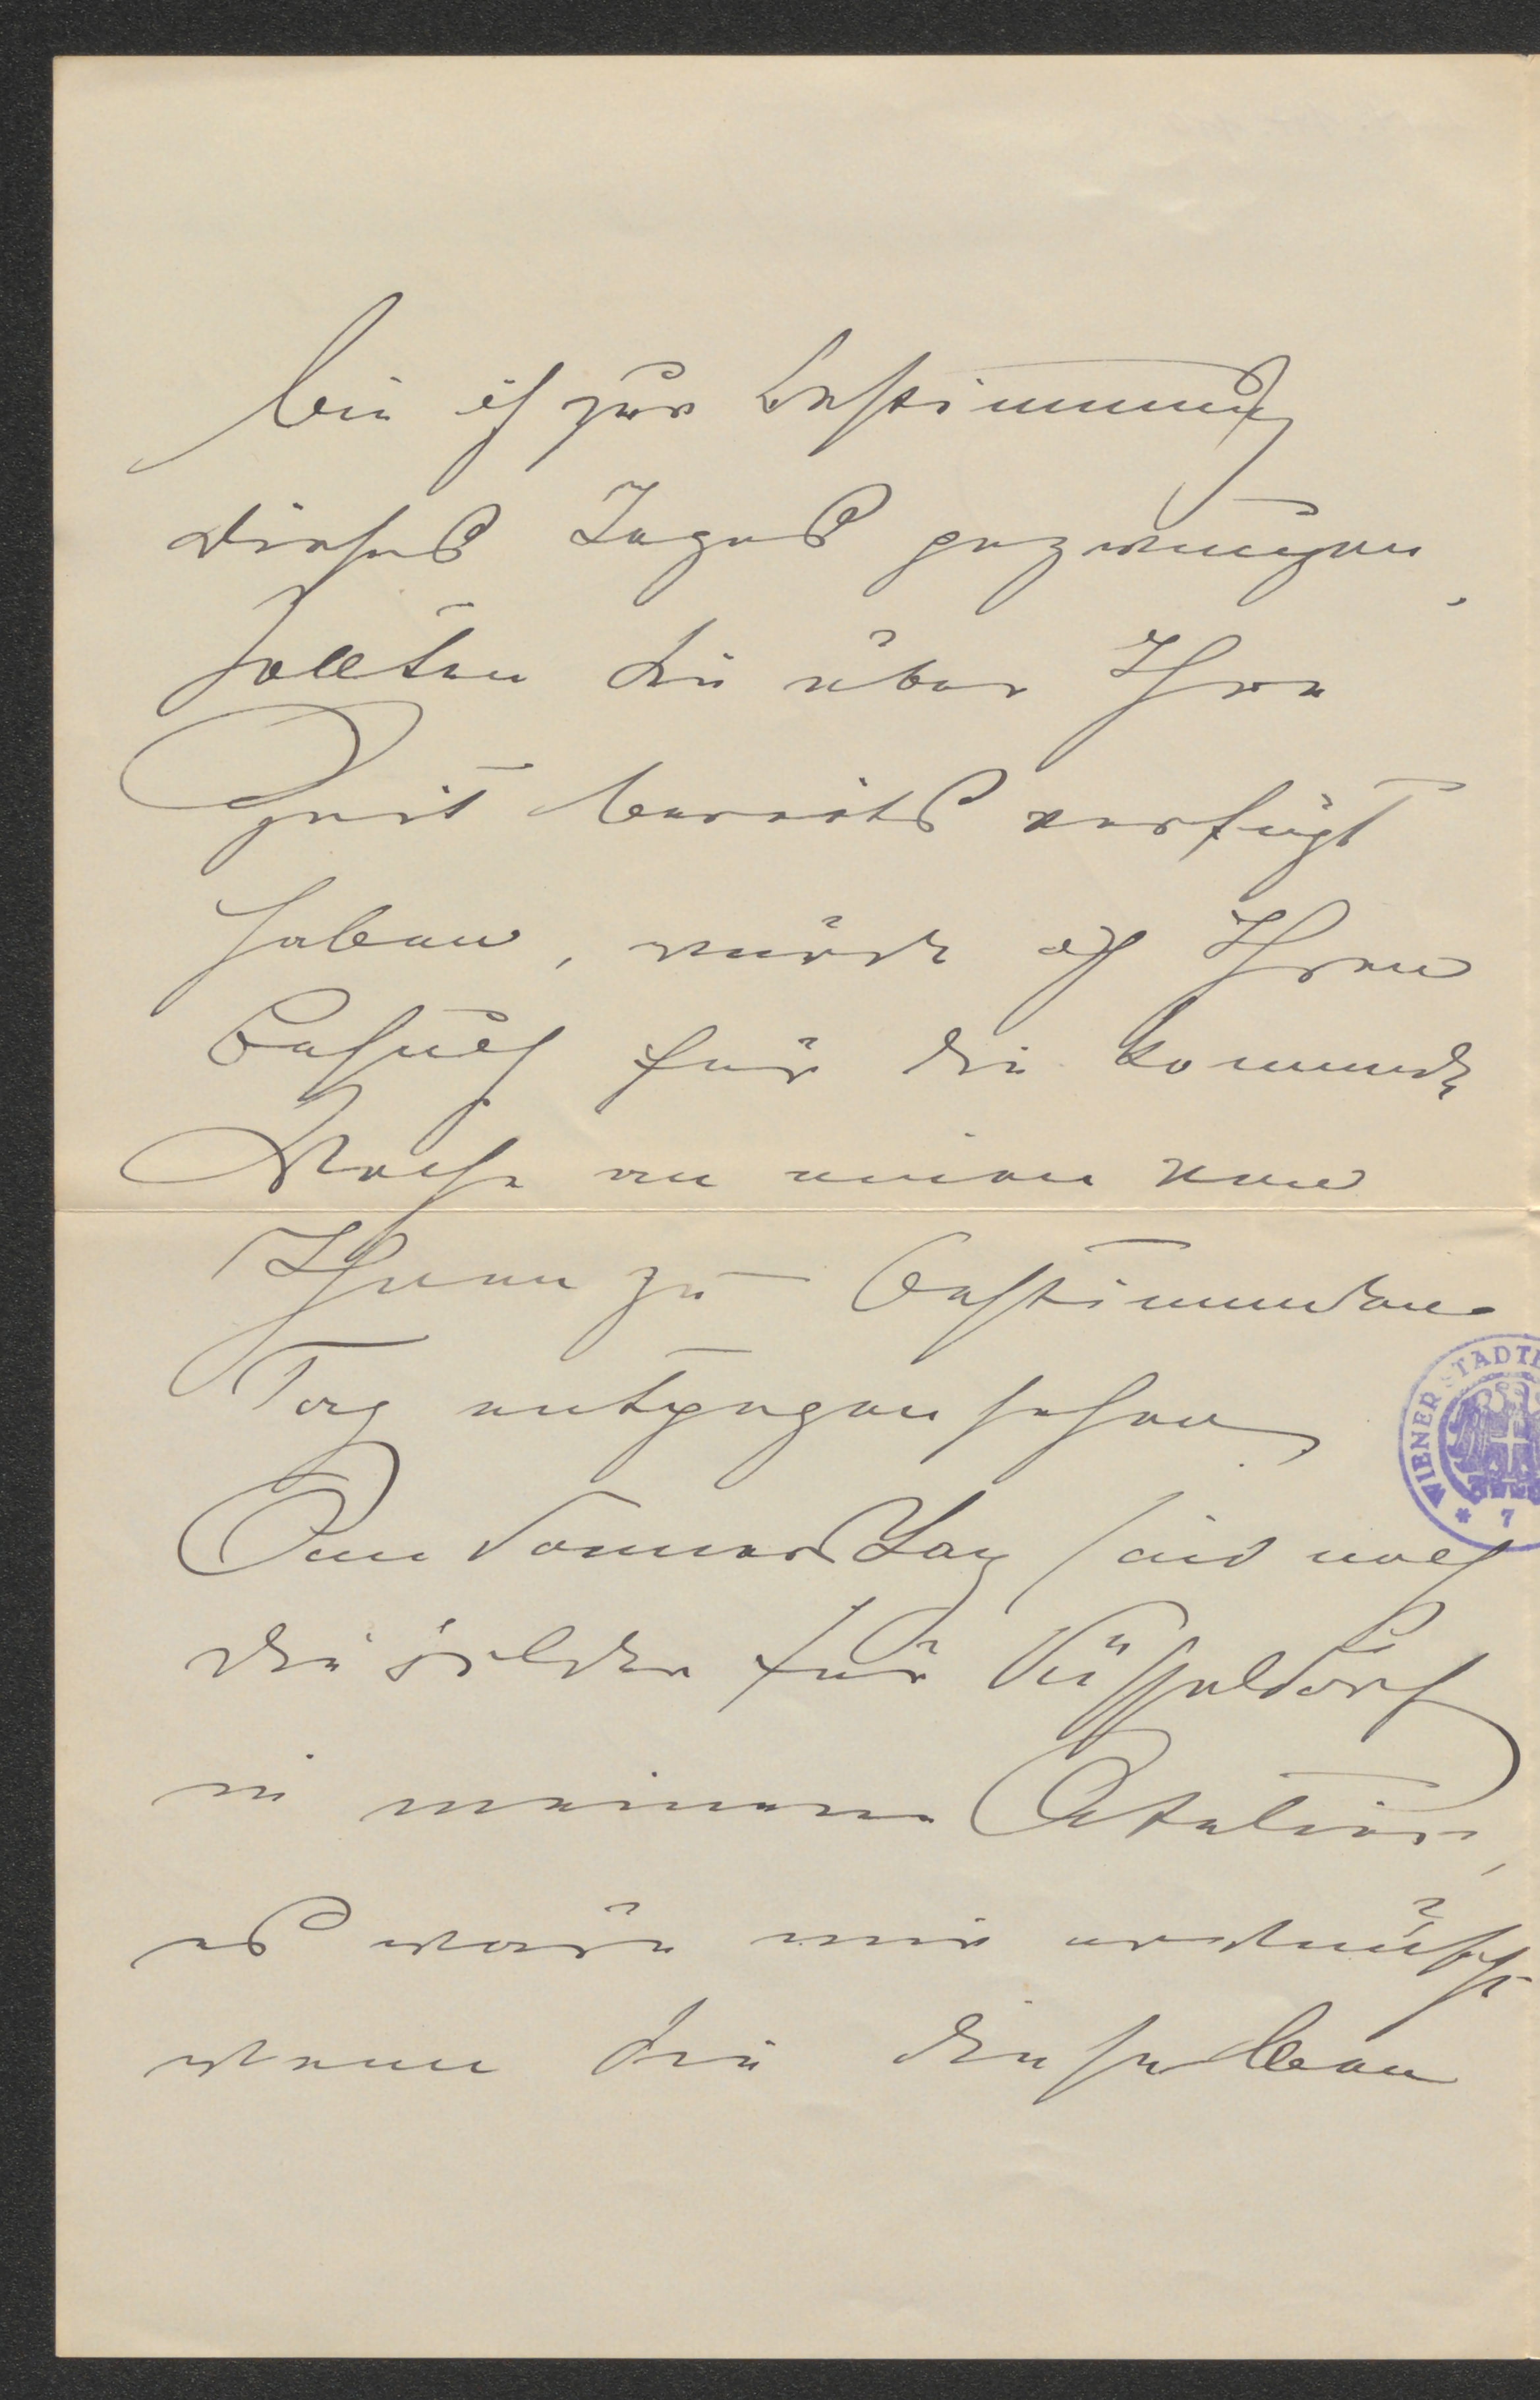 bin ich zur Bestimmung
dieses Tages gezwungen,
sollten Sie über Ihre
Zeit bereits verfügt
haben, würde ich Ihren
Besuch für die kommende
Woche an einem von
Ihnen zu bestimmenden
Tag entgegensehen.
Am Donnerstag sind noch
die Bilder für Düsseldorf
in meinem Atelier,
es wäre mir erwünscht
wenn Sie dieselben
WIENER STADTB
* 7